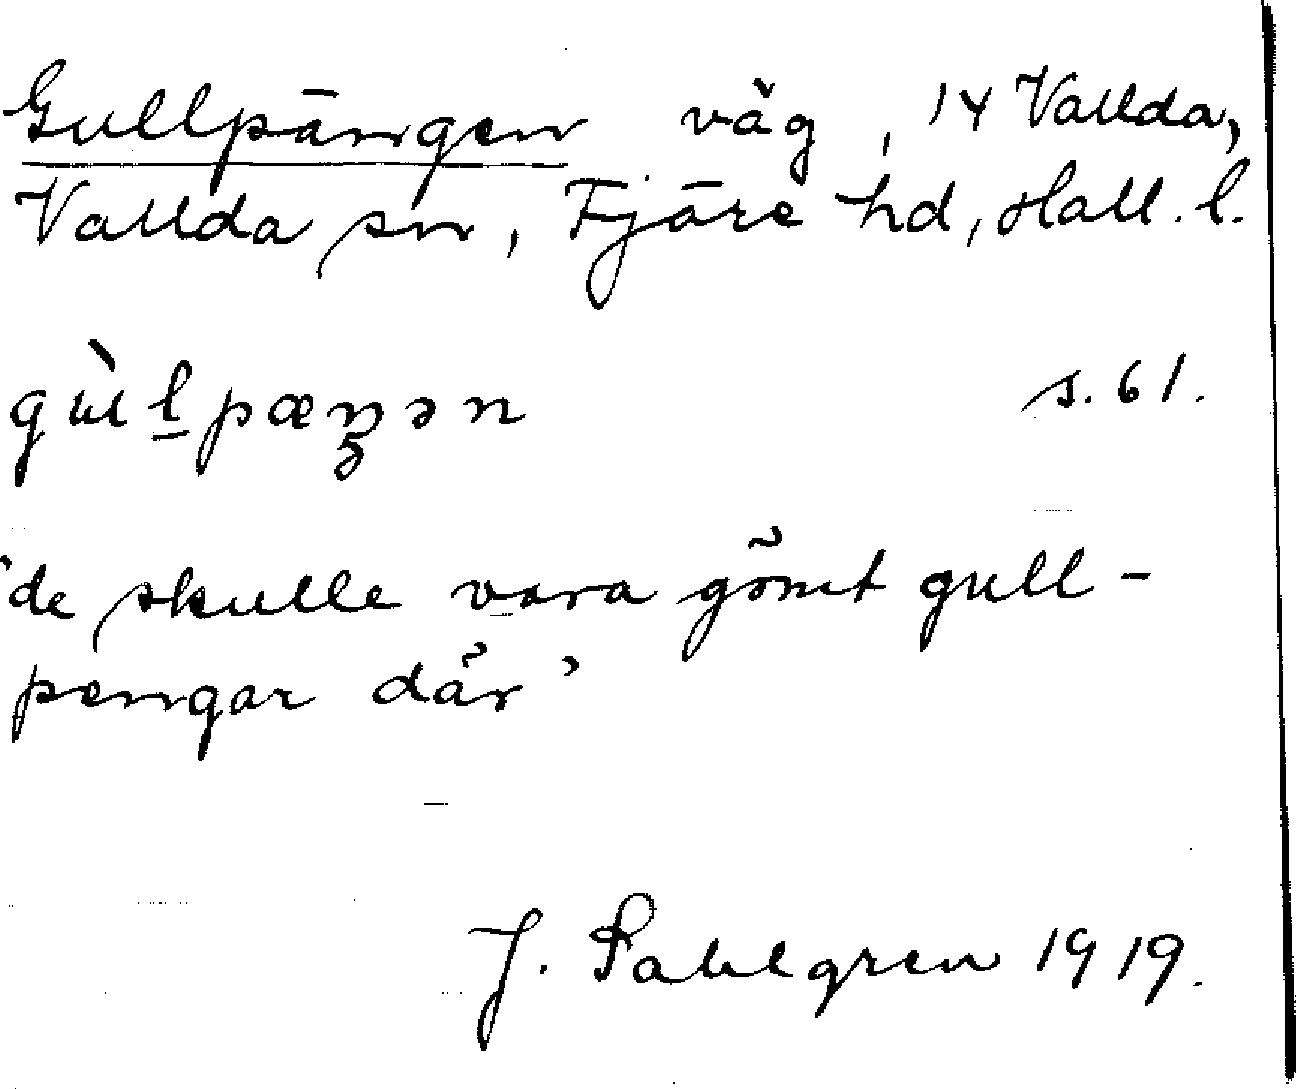 Gullpängen väg, 14 Vallda,
Vallda sn, Fjäre hd, Hall. l.
gɯ̀l̠pæŋən s. 61.
'de skulle vara gömt gull-
pengar där'
J. Sahlgren 1919.